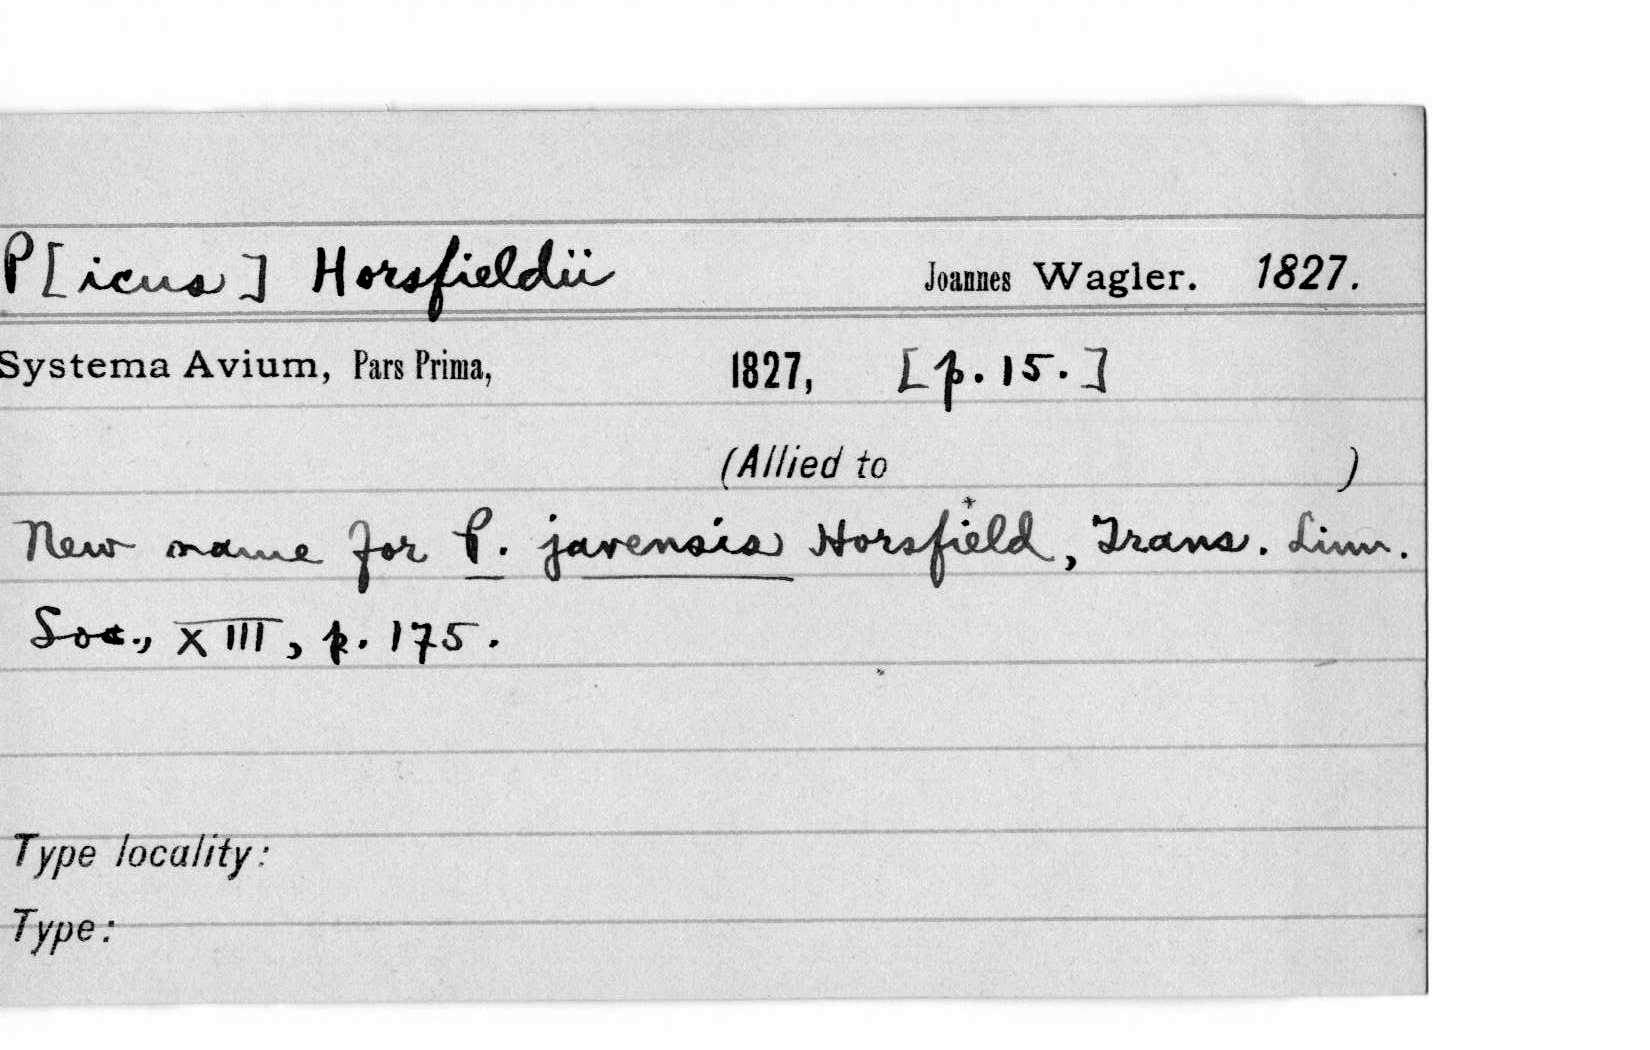 P[icus] Horsfieldii Joannes Wagler. 1827.
Systema Avium, Pars Prima, 1827, [p. 15.]
(Allied to )
New name for P. javensis Horsfield, Trans. Linn.
Soc., XIII, p. 175.
Type locality:
Type: